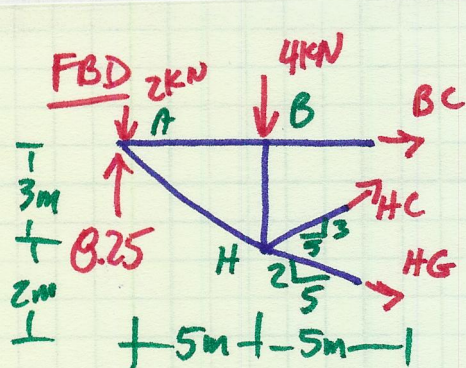 FBD
2KN
4KN
A
B
BC
3m
8.25
HC
5
3
H
2
5
HG
2m
5m
5m